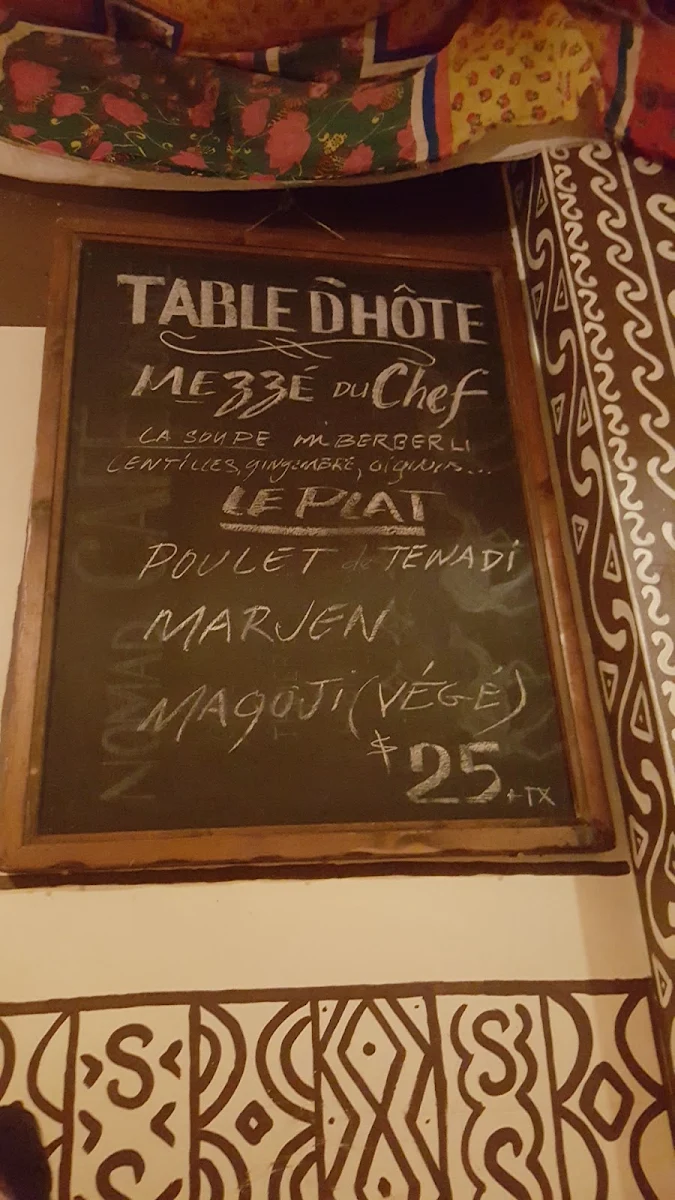 TABLE D'HÔTE
MEZZÉ DU Chef
LA SOUPE mi BERBERLI
LENTILLES, gingembre, oignons...
LE PLAT
POULET de TENADI
MARJEN
MAGOJi (VÉGÉ)
$25 +TX
NOMAD CAFE